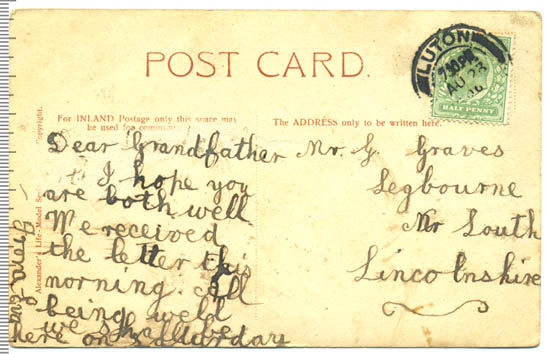 POST CARD.
LUTON
7.30 PM
AU 23
06
HALF PENNY
For INLAND Postage only this space may
be used for
The ADDRESS only to be written here.
Copyright.
Alexander's Life-Model
Dear Grandfather
I hope you
are both well
We received
the letter this
morning. All
being weld
we shall be
here on Saturday
from
Mr. G. Graves
Legbourne
Nr South
Lincolnshire